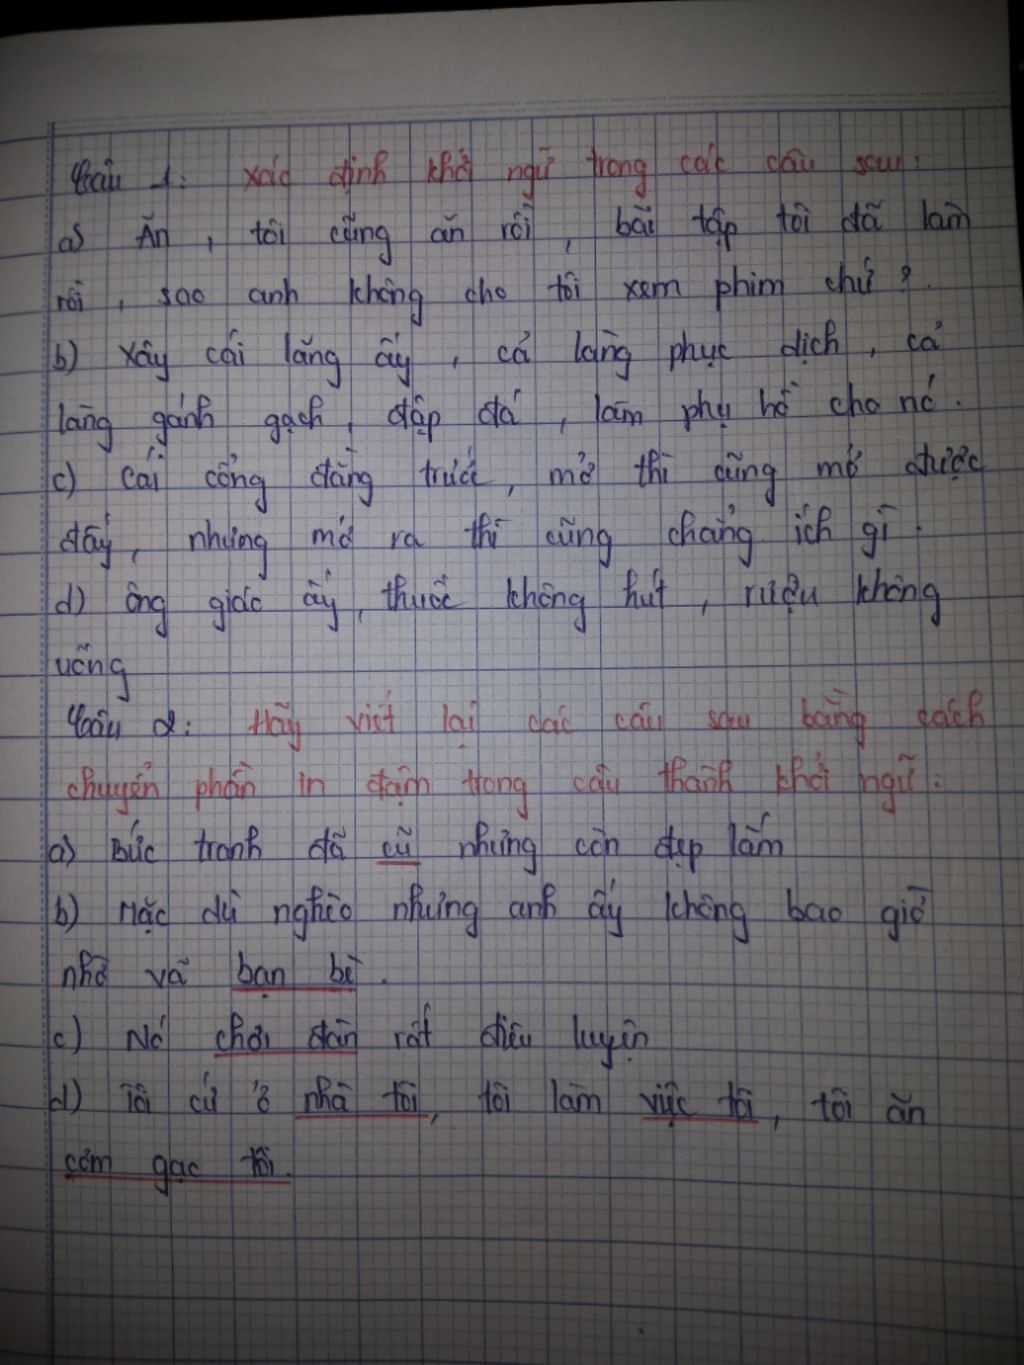 Câu 1: xác định khởi ngữ trong các câu sau:
a) Ăn, tôi cũng ăn rồi, bài tập tôi đã làm
rồi, sao anh không cho tôi xem phim chứ?
b) xây cái lăng ấy, cả làng phục dịch, cả
làng gánh gạch, đập đá, làm phụ hồ cho nó.
c) Cái cổng đằng trước, mở thì cũng mở được
đấy, nhưng mở ra thì cũng chẳng ích gì.
d) ông giáo ấy, thuốc không hút, rượu không
uống
Câu 2: Hãy viết lại các câu sau bằng cách
chuyển phần in đậm trong câu thành khởi ngữ:
a) Bức tranh đã cũ nhưng còn đẹp lắm
b) Mặc dù nghèo nhưng anh ấy không bao giờ
nhờ vả bạn bè.
c) Nó chơi đàn rất điêu luyện
d) Tôi cứ ở nhà tôi, tôi làm việc tôi, tôi ăn
cơm gạo tôi.